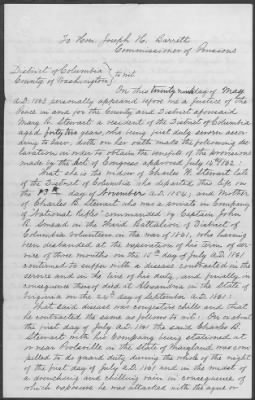 To Hon. Joseph H. Barrett
Commissioner of Pensions
District of Columbia }
County of Washington } to wit
On this twenty ninth day of May
A.D. 1863 personally appeared before me a Justice of the
Peace in and for the County and District aforesaid
Mary B. Stewart a resident of the District of Columbia
aged forty two years, who being first duly sworn accor
ding to law, doth, on her oath, make the following dec
laration in order to obtain the benefit of the provisions
made by the act of Congress approved July 14th 1862:
That she is the widow of Charles W. Stewart late
of the District of Columbia who departed this life on
the 19th day of November A.D. 1854, and mother
of Charles B. Stewart who was a private in Company
of National Rifles commanded by Captain John
R. Smead in the Third Battalion of District of
Columbia Volunteers in the war of 1861, who having
been disbanded at the expiration of his term of ser
vice of three months on the 15th day of July A.D. 1861
continued to suffer with a disease contracted in the
service and in the line of his duty, and finally in
consequence thereof died at Alexandria in the State of
Virginia on the 24th day of September A.D. 1861:
That said disease was congestive chills and that
he contracted the same as follows to wit: On or about
the first day of July A.D. 1861 the said Charles B.
Stewart with his Company being stationed at
or near Poolesville in the State of Maryland was com
pelled to do guard duty during the whole of the night
of the first day of July A.D. 1861 and in the midst of
a drenching and chilling rain in consequence of
which exposure he was attacked with the ague or